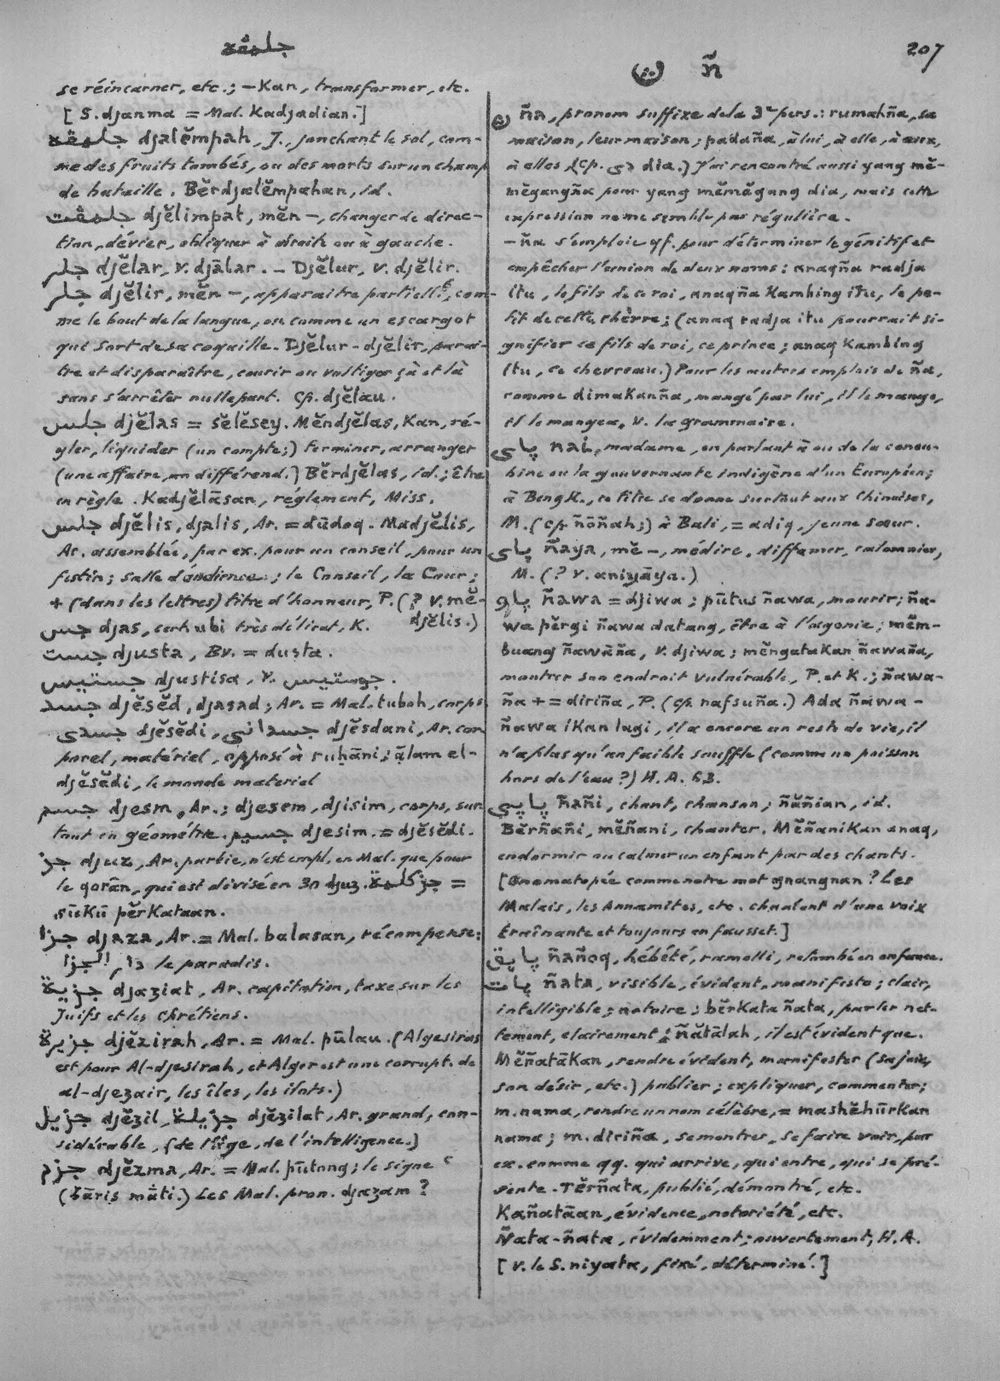 جلمڤه
207
se réincarner, etc.; –Kan, transformer, etc.
[S. djanma = Mal. Kadjadian.]
جلمڤه djalĕmpah, J., jonchant le sol, com-
me des fruits tombés, ou des morts sur un champ
de bataille. Bĕrdjalĕmpahan, id.
جلمڤت djĕlimpat, mĕn –, changer de direc-
tion, dévier, obliquer à droite ou à gauche.
جلر djĕlar, v. djālar. – Djĕlur, v. djĕlir.
جلر djĕlir, mĕn –, apparaitre partiell.t, com-
me le bout de la langue, ou comme un escargot
qui sort de sa coquille. Djĕlur-djĕlir, paraî-
tre et disparaître, courir ou voltiger çà et là
sans s'arrêter nulle part. Cp. djĕlau.
جلس djĕlas = sĕlĕsey. Mĕndjĕlas, Kan, ré-
gler, liquider (un compte;) terminer, arranger
(une affaire, un différend.) Bĕrdjĕlas, id.; être
en règle. Kadjĕlāsan, réglement, Miss.
جلس djĕlis, djalis, Ar. = dūdoq. Madjĕlis,
Ar. assemblée, par ex. pour un conseil, pour un
festin; salle d'audience; le Conseil, la Cour;
+ (dans les lettres) titre d'honneur, P. (? v. mĕ-
djĕlis.)
جس djas, cerk ubi très délicat, K.
جست djusta, Bv. = dusta.
جستيس djustisa, v. جوستيس.
جسد djĕsĕd, djasad; Ar. = Mal. tuboh, corps
جسدي djĕsĕdi, جسداني djĕsdani, Ar. cor
porel, matériel, opposé à ruḥāni; ʿālam el-
djĕsĕdi, le monde materiel
جسم djesm, Ar.; djesem, djisim, corps, sur
tout en géométre. جسيم djesim. = djĕsĕdi.
جز djuz, Ar. partie, n'est empl. en Mal. que pour
le qorān, qui est divisé en 30 djuz. جز كلمة =
sūku pĕrkataan.
جزا djaza, Ar. = Mal. balasan, récompense;
دار الجزا le paradis.
جزية djaziat, Ar. capitation, taxe sur les
Juifs et les Chrétiens.
جزيرة djĕzirah, Ar. = Mal. pūlau. (Algesiras
est pour Al-djesirah, et Alger est une corrupt. de
al-djezair, les îles, les ilots.)
جزيل djĕzil, جزيلة djĕzilat, Ar. grand, con-
sidérable, (de l'âge, de l'intelligence.)
جزم djĕzma, Ar. = Mal. pūtong; le signe
(bāris māti.) Les Mal. pron. djazam?
ñ
ña, pronom suffixe de la 3e pers.: rumahña, sa
maison, leur maison; padaña, à lui, à elle, à eux,
à elles (Cp. دي dia.) J'ai rencontré aussi yang mĕ-
mĕgangña pour yang mĕmĕgang dia, mais cette
expression ne me semble pas régulière.
–ña s'emploie qf. pour déterminer le génitif et
empêcher l'union de deux noms: anaqña radja
itu, le fils de ce roi, anaqña kambing itu, le pe-
tit de cette chèvre; (anaq radja itu pourrait si-
gnifier ce fils de roi, ce prince; anaq Kambing
itu, ce chevreau.) Pour les autres emplois de ña,
comme dimakanña, mangé par lui, il le mange,
il le mangea, v. la grammaire.
ڽاي ñai, madame, en parlant à ou de la concu-
bine ou la gouvernante indigène d'un Européen;
à Bengk., ce titre se donne surtout aux Chinoises,
M. (cp. ñōñah;) à Bali, = adiq, jeune sœur.
ڽاي ñaya, mĕ –, médire, diffamer, calomnier,
M. (? v. aniyāya.)
ڽاو ñawa = djiwa; pūtus ñawa, mourir; ña-
wa pĕrgi ñawa datang, être à l'agonie; mĕm-
buang ñawāña, v. djiwa; mĕngatakan ñawaña,
montrer son endroit vulnérable, P. et K.; ñawa-
ña + = diriña, P. (cp. nafsuña.) Ada ñawa-
ñawa ikan lagi, il a encore un reste de vie, il
n'a plus qu'un faible souffle (comme un poisson
hors de l'eau?) H. A. 63.
ڽاڽي ñañi, chant, chanson; ñāñian, id.
Bĕrñañi, mĕñani, chanter. Mĕñanikan anaq,
endormir ou calmer un enfant par des chants.
[Onomatopée comme notre mot gnangnan? Les
Malais, les Annamites, etc. chantent d'une voix
traînante et toujours en fausset.]
ڽاڽق ñañoq, hébété, ramolli, retombé en enfance.
ڽات ñata, visible, évident, manifeste; clair,
intelligible; notoire; bĕrkata ñata, parler net-
tement, clairement; ñātālah, il est évident que.
Mĕñatākan, rendre évident, manifester (sa joie,
son désir, etc.) publier; expliquer, commenter;
m. nama, rendre un nom célèbre, = mashĕhūrkan
nama; m. diriña, se montrer, se faire voir, par
ex. comme qq. qui arrive, qui entre, qui se pré-
sente. Tĕrñata, publié, démontré, etc.
Kañatāan, évidence, notoriété, etc.
Ñata-ñata, évidemment; ouvertement, H. A.
[v. le S. niyata, fixé, déterminé.]